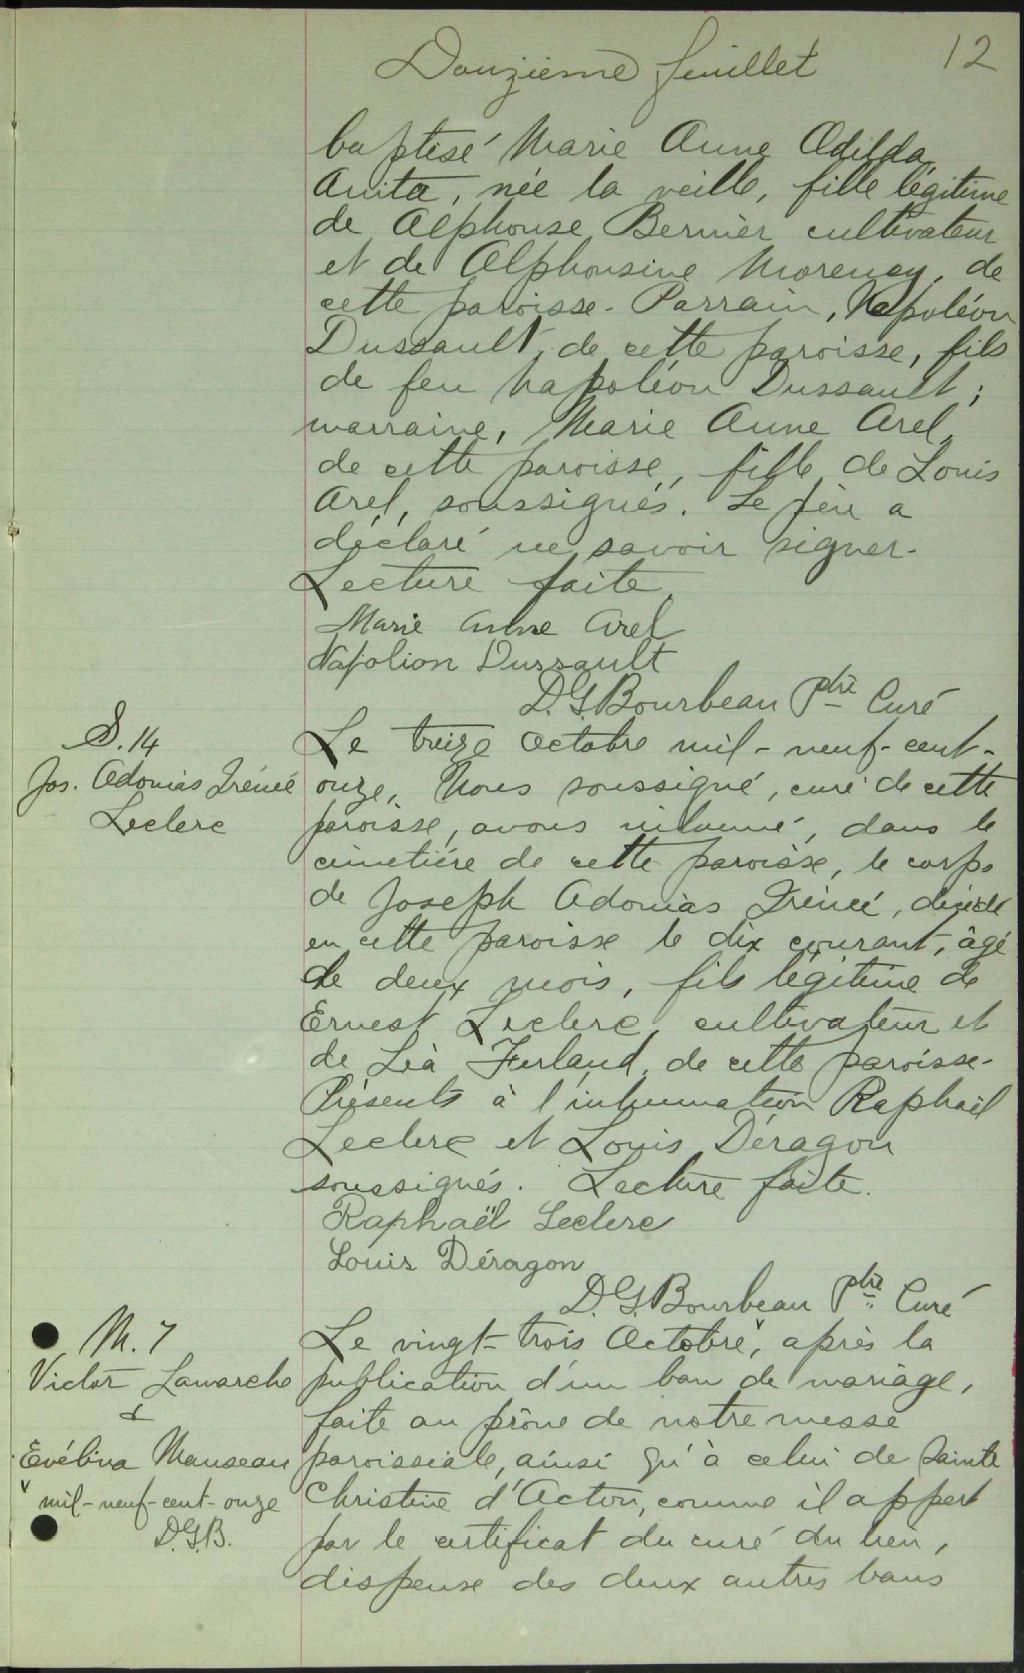 Douzième feuillet 12
baptisé Marie Anne Odilda
Anita, née la veille, fille légitime
de Alphonse Bernier cultivateur
et de Alphonsine Morency, de
cette paroisse. Parrain, Napoléon
Dussault, de cette paroisse, fils
de feu Napoléon Dussault ;
marraine, Marie Anne Arel,
de cette paroisse, fille de Louis
Arel, soussignés. Le père a
déclaré ne savoir signer.
Lecture faite.
Marie Anne Arel
Napolion Dussault
D.G. Bourbeau Ptre Curé
S. 14
Jos. Adonias Irénée
Leclerc
Le treize Octobre mil-neuf-cent-
onze, Nous soussigné, curé de cette
paroisse, avons inhumé, dans le
cimetière de cette paroisse, le corps
de Joseph Adonias Irénée, décédé
en cette paroisse le dix courant, âgé
de deux mois, fils légitime de
Ernest Leclerc, cultivateur et
de Léa Ferland, de cette paroisse.
Présents à l'inhumation Raphaël
Leclerc et Louis Déragon
soussignés. Lecture faite.
Raphaël Leclerc
Louis Déragon
D.G. Bourbeau Ptre Curé
M. 7
Victor Lamarche
&
Evélina Manseau
v mil-neuf-cent-onze
D.G.B.
Le vingt-trois Octobre v, après la
publication d'un ban de mariage,
faite au prône de notre messe
paroissiale, ainsi qu'à celui de Sainte
Christine d'Acton, comme il appert
par le certificat du curé du lieu,
dispense des deux autres bans